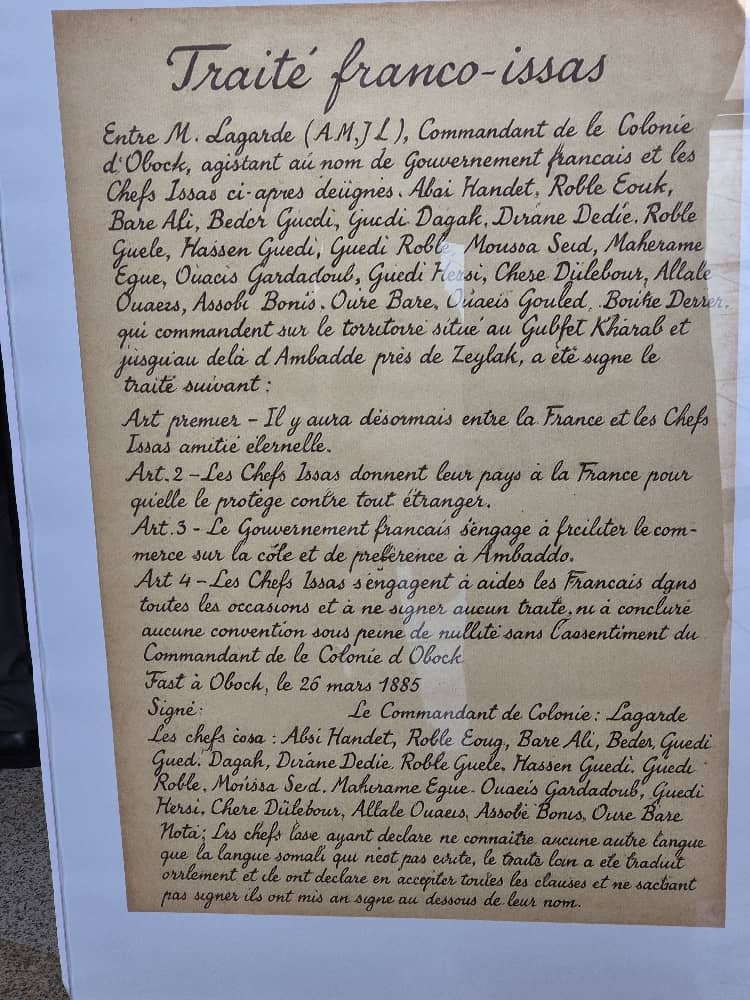 Traité franco-issas
Entre M. Lagarde (A.M,J L), Commandant de le Colonie
d'Obock, agistant aú nom de Gouvernement francais et les
Chefs Issas ci-apres deügnes. Abai Handet, Roble Eouk,
Bare Ali, Beder Gucdi, Gucdi Dagak, Dırane Dedie. Roble
Guele, Hassen Guedi, Guedi Roble, Moussa Seıd, Maherame
Egue, Ouacis Gardadoub, Guedi Hersi, Chere Dülebour, Allale
Ouaezs, Assobi Bonis. Oure Bare, Ouaeis Gouled, Bouke Derrer.
qui commandent sur le torrtoire situé au Gubfet Kharab et
jusgu'au delà d Ambadde près de Zeylak, a été signe le
traité suivant :
Art premier – Il y aura désormais entre la France et les Chefs
Issas amitié élernelle.
Art. 2 – Les Chefs Issas donnent leur pays à la France pour
qu'elle le protège contre tout étranger.
Art. 3 - Le Gouvernement francais s'engage à frciliter le com-
merce sur la côle et de preference à Ambaddo.
Art 4 – Les Chefs Issas s'engagent à aides les Francais dans
toutes les occasions et à ne signer aucun traite, nı à concluré
aucune convention sous peine de nullité sans l'assentiment du
Commandant de le Colonie d Obock
Fast à Obock, le 26 mars 1885
Signé: Le Commandant de Colonie : Lagarde
Les chefs cosa : Absi Handet, Roble Eoug, Bare Ali, Beder, Guedi
Gued. Dagah, Dırane Dedie. Roble Guele. Hassen Guedi. Guedi
Roble. Moussa Seıd. Mahırame Egue- Ouaeis Gardadoub, Guedi
Hersi. Chere Dülebour, Allale Ouaeıs, Assobé Bonıs, Oure Bare
Nota; Lrs chefs lase ayant declare ne connaître ancune autre langue
que la langue somali qui n'est pas ecrite, le traite loın a ete traduit
orrlement et ile ont declare en accepter toutes les clauses et ne sachant
pas signer ils ont mis an signe au dessous de leur nom.